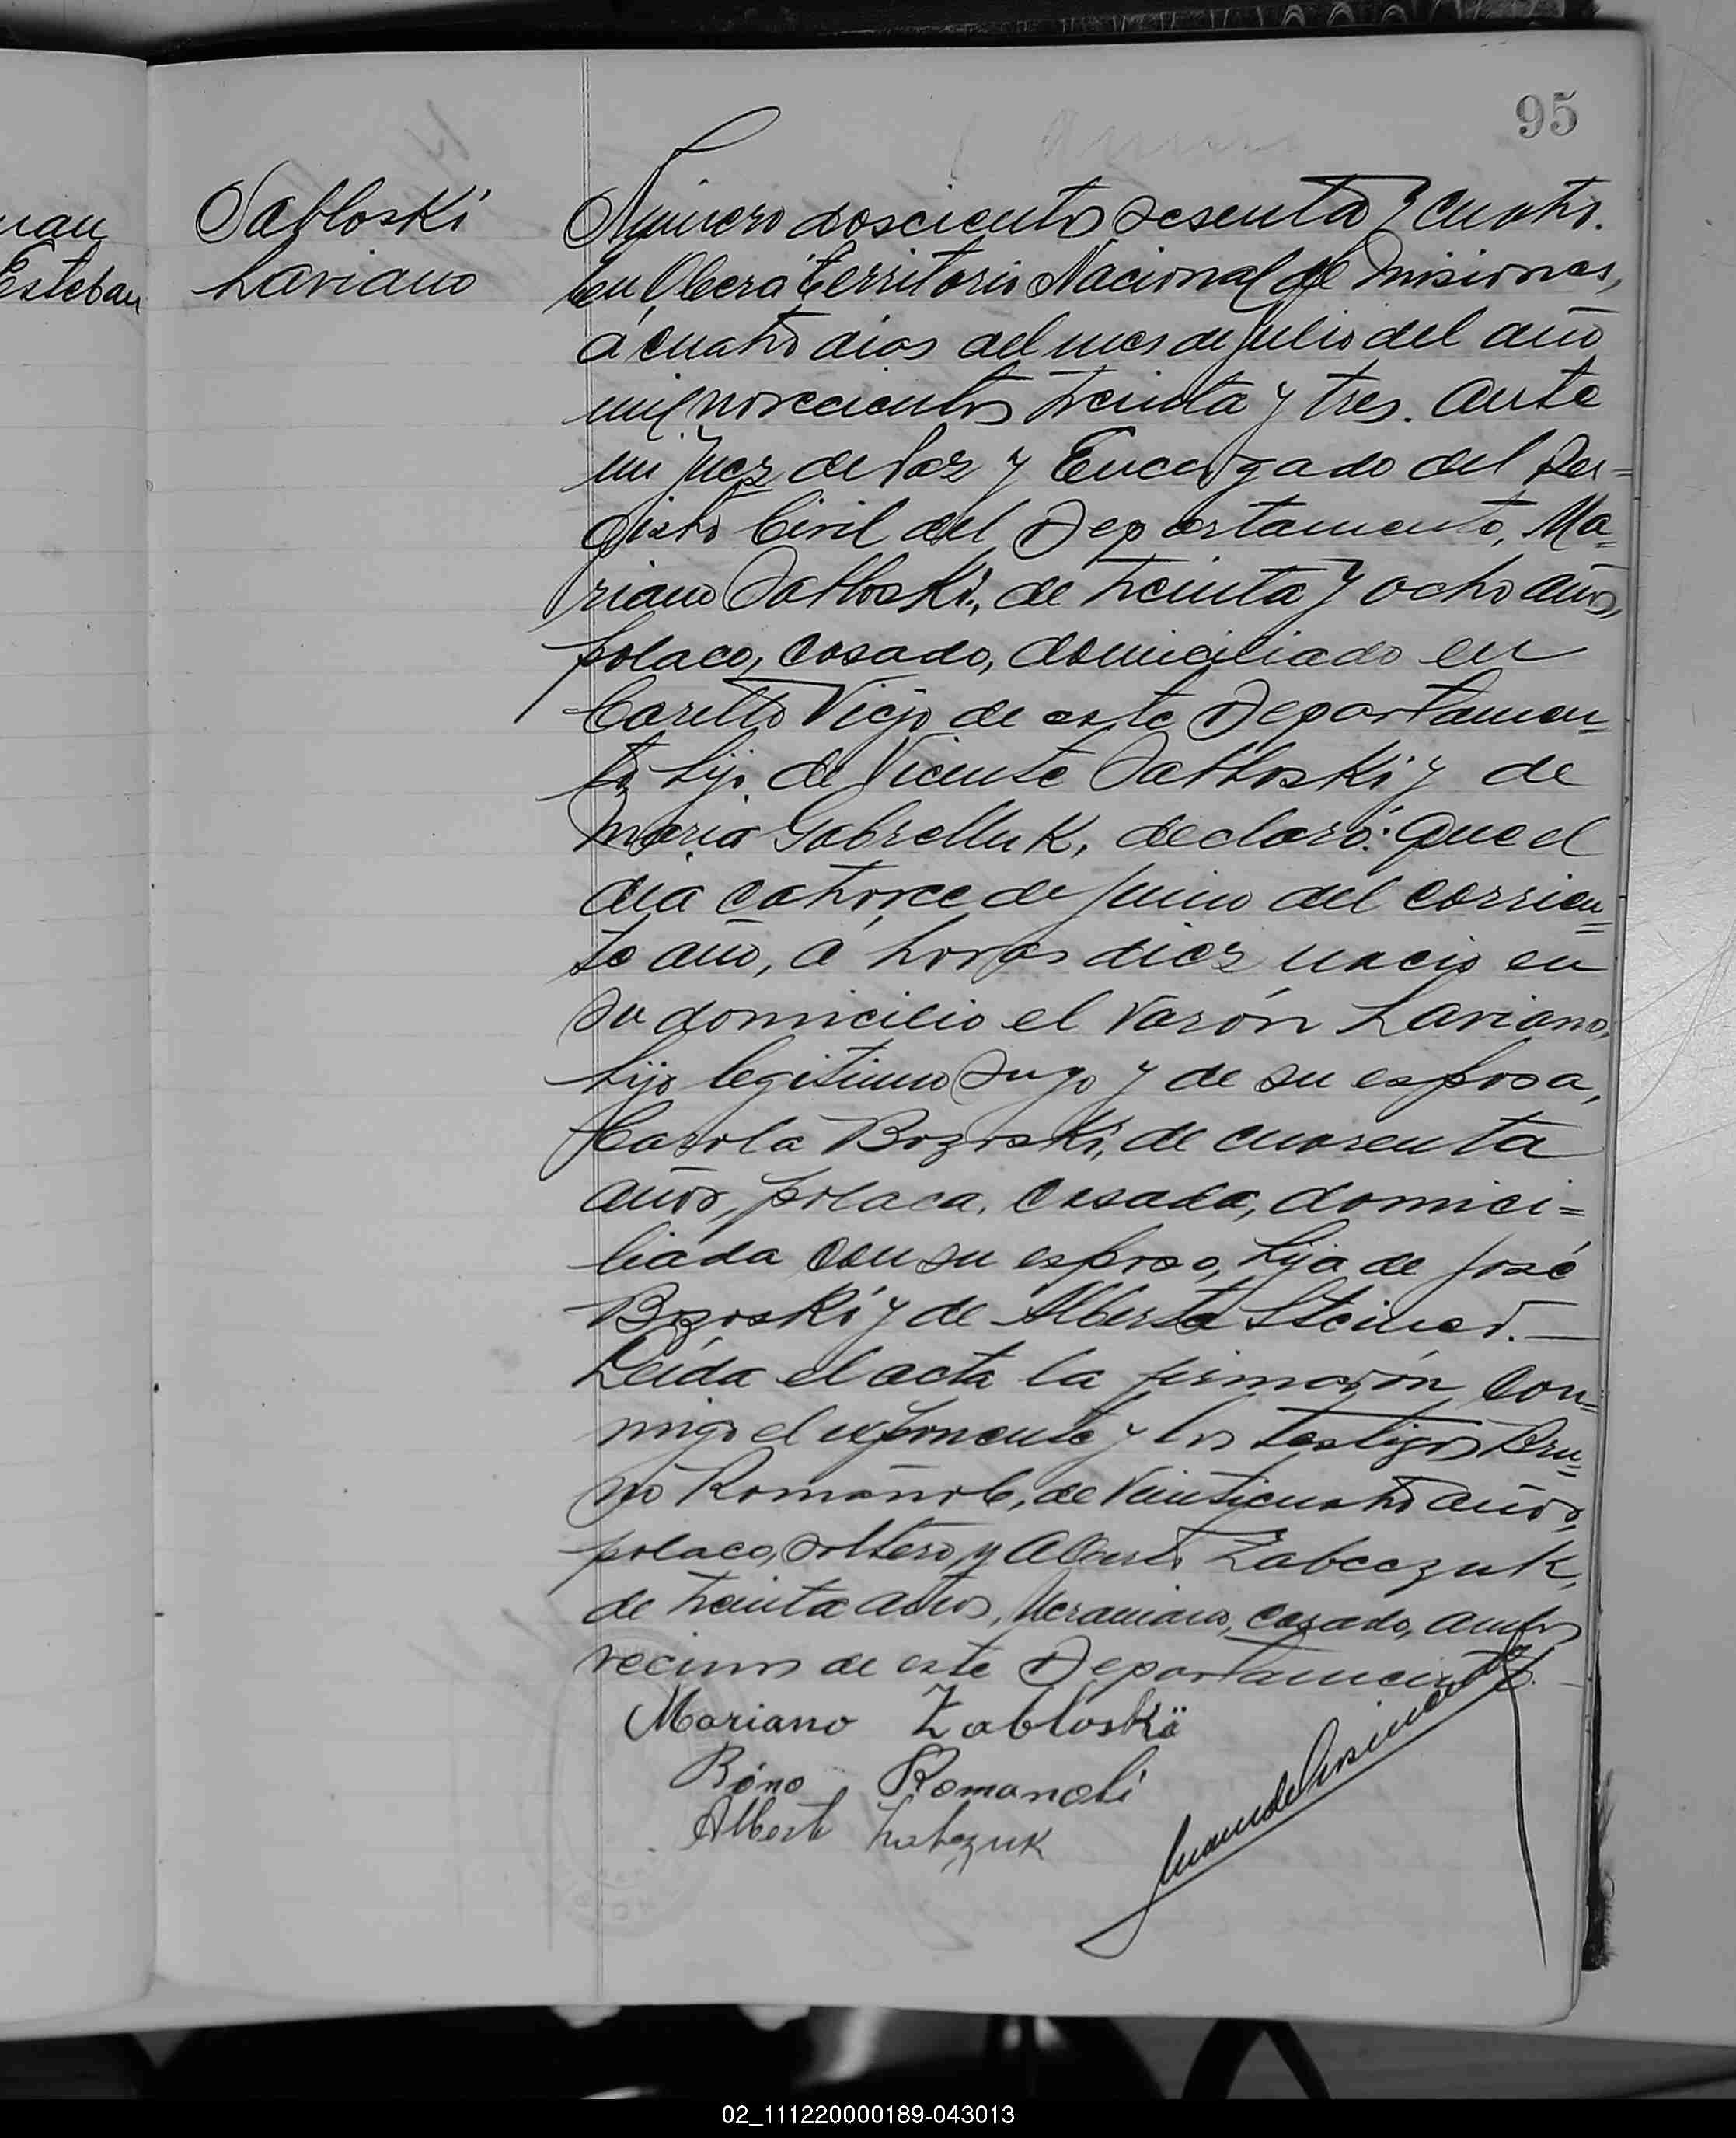 95
nau
Esteban
Sabloski
Laviano
Número doscientos sesenta y cuatro.
En Oberá Territorio Nacional de Misiones,
á cuatro dias del mes de Julio del año
mil novecientos treinta y tres. Ante
mi Juez de Paz y Encargado del Re=
gistro Civil del Departamento, Ma=
riano Sabloski, de treinta y ocho años,
polaco, casado, domiciliado en
Viejo de este Departamen=
to, hijo de Vicente Sabloski y de
Maria Gabrelluk, declaró: Que el
dia catorce de Junio del corrien=
te año, á horas diez nació en
su domicilio el varón Laviano,
hijo legitimo suyo y de su esposa,
Carola Bozoski, de cuarenta
años, polaca, casada, domici=
liada con su esposo, hija de José
Bozoski y de Alberta Steiner.—
Leida el acta la firmarón con=
migo el exponente y los testigos Bru=
no de veinticuatro años,
polaco, soltero y Alberto Zabczuk,
de treinta años, Ucraniano, casado, ambos
vecinos de este Departamento.—
Mariano Zabloski
Romanoli
Albert
02_111220000189-043013